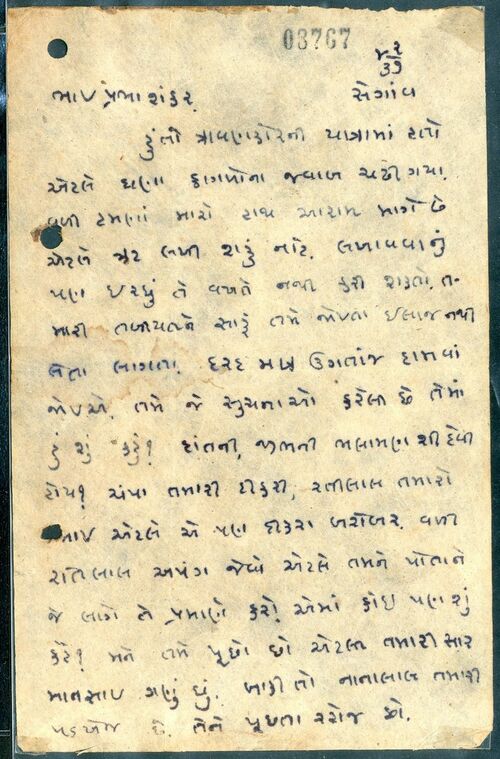 03767
૪૨
૩૭
ભાઇ પ્રભાશંકર, સેગાંવ
હું તો ત્રાવણકોરની યાત્રામાં હતો
એટલે ઘણા કાગળોના જવાબ ચઢી ગયા.
વળી હમણાં મારો હાથ આરામ માગે છે
એટલે ઝટ લખી શકું નહિં. લખાવવાનું
પણ ઇચ્છું તે વખતે નથી કરી શકતો. ત-
મારી તબીયતને સારૂં તમે જોઇતા ઇલાજ નથી
લેતા લાગતા. દરદ ઉગતાંજ દામવાં
જોઇએ. તમે જે સુચનાઓ કરેલી છે તેમાં
હું શું કહું? દાંતની, જીભની ભલામણ શી દેવી
હોય? ચંપા તમારી દીકરી, રતીલાલ તમારો
જમાઇ એટલે એ પણ દીકરા બરોબર. વળી
રતિલાલ અપંગ જેવો એટલે તમને પોતાને
જે લાગે તે પ્રમાણે કરો. એમાં કોઇ પણ શું
કહે? મને તમે પૂછો છો એટલા તમારી સાર
માનસાઇ ગણું છું. બાકી તો નાનાલાલ તમારી
પડખેજ છે. તેને પૂછતા રહેજો.